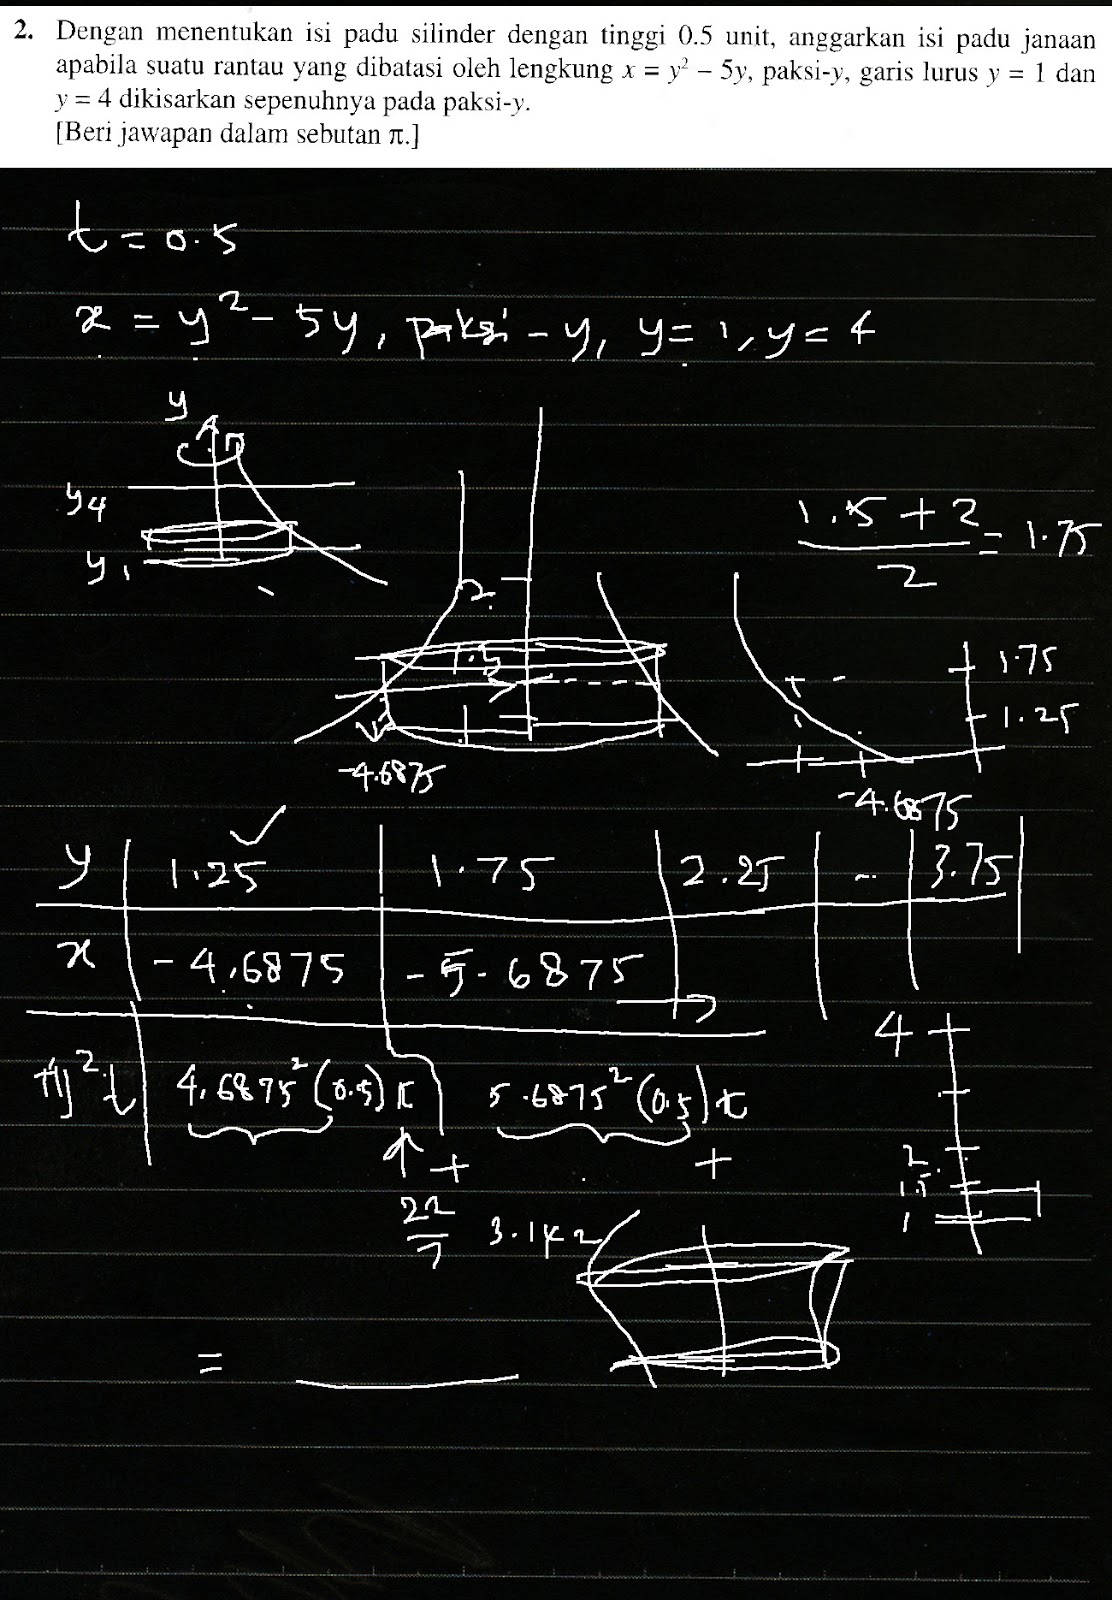 2. Dengan menentukan isi padu silinder dengan tinggi 0.5 unit, anggarkan isi padu janaan
apabila suatu rantau yang dibatasi oleh lengkung x = y² – 5y, paksi-y, garis lurus y = 1 dan
y = 4 dikisarkan sepenuhnya pada paksi-y.
[Beri jawapan dalam sebutan π.]
t = 0.5
x = y² - 5y, paksi - y, y = 1, y = 4
y
y4
y1
2
1.5
-4.6875
1.5 + 2
= 1.75
2
1.75
1.25
-4.6875
y 1.25 1.75 2.25 .. 3.75
x - 4.6875 - 5.6875
πj²t 4.6875² (0.5) π 5.6875² (0.5) π
+ +
22
7
3.142
4
2
1.5
1
=